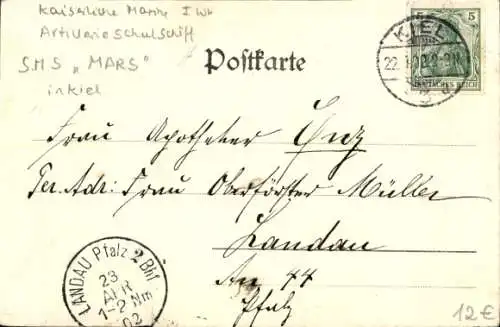 Kaiserliche Marine I WK
Artillerieschulschiff
SMS „MARS"
in Kiel
Postkarte
KIEL
22.
5 5
DEUTSCHES REICH
Frau Apotheker Enz
Per. Adr: Frau Oberförster Müller
Landau
An 44
Pfalz
LANDAU Pfalz 2 Bhf
23
APR
1-2 Nm
02
12€